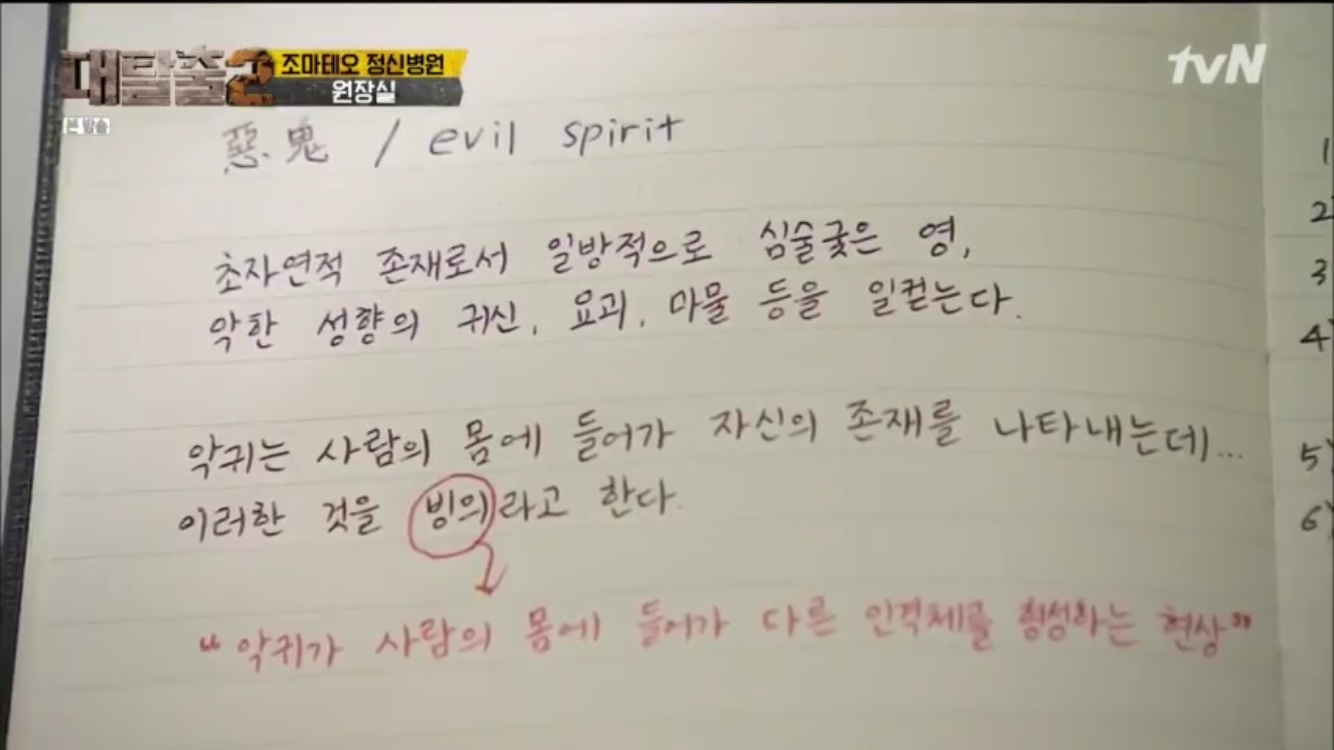 대탈출2
조마테오 정신병원
원장실
tvN
본 방송
惡鬼 / evil spirit
초자연적 존재로서 일방적으로 심술궂은 영,
악한 성향의 귀신, 요괴, 마물 등을 일컫는다.
악귀는 사람의 몸에 들어가 자신의 존재를 나타내는데...
이러한 것을 빙의라고 한다.
“악귀가 사람의 몸에 들어가 다른 인격체를 형성하는 현상”
1
2)
3
4)
5)
6)